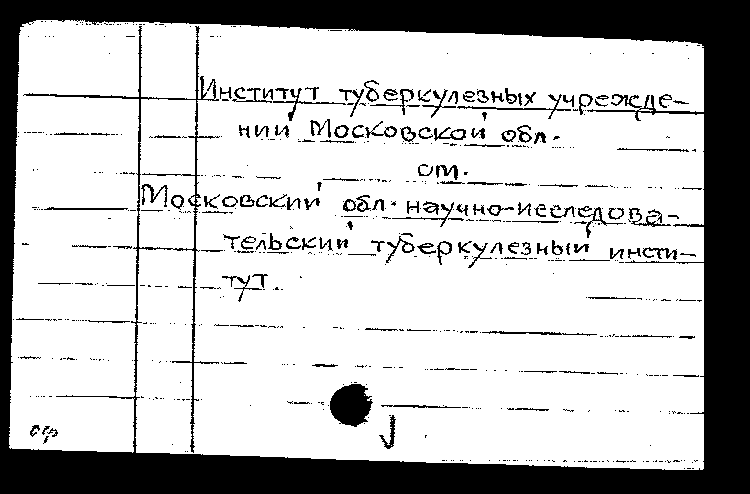 Институт туберкулезных учрежде-
ний Московской обл.
см.
Московский обл. научно-исследова-
тельский туберкулезный инсти-
тут.